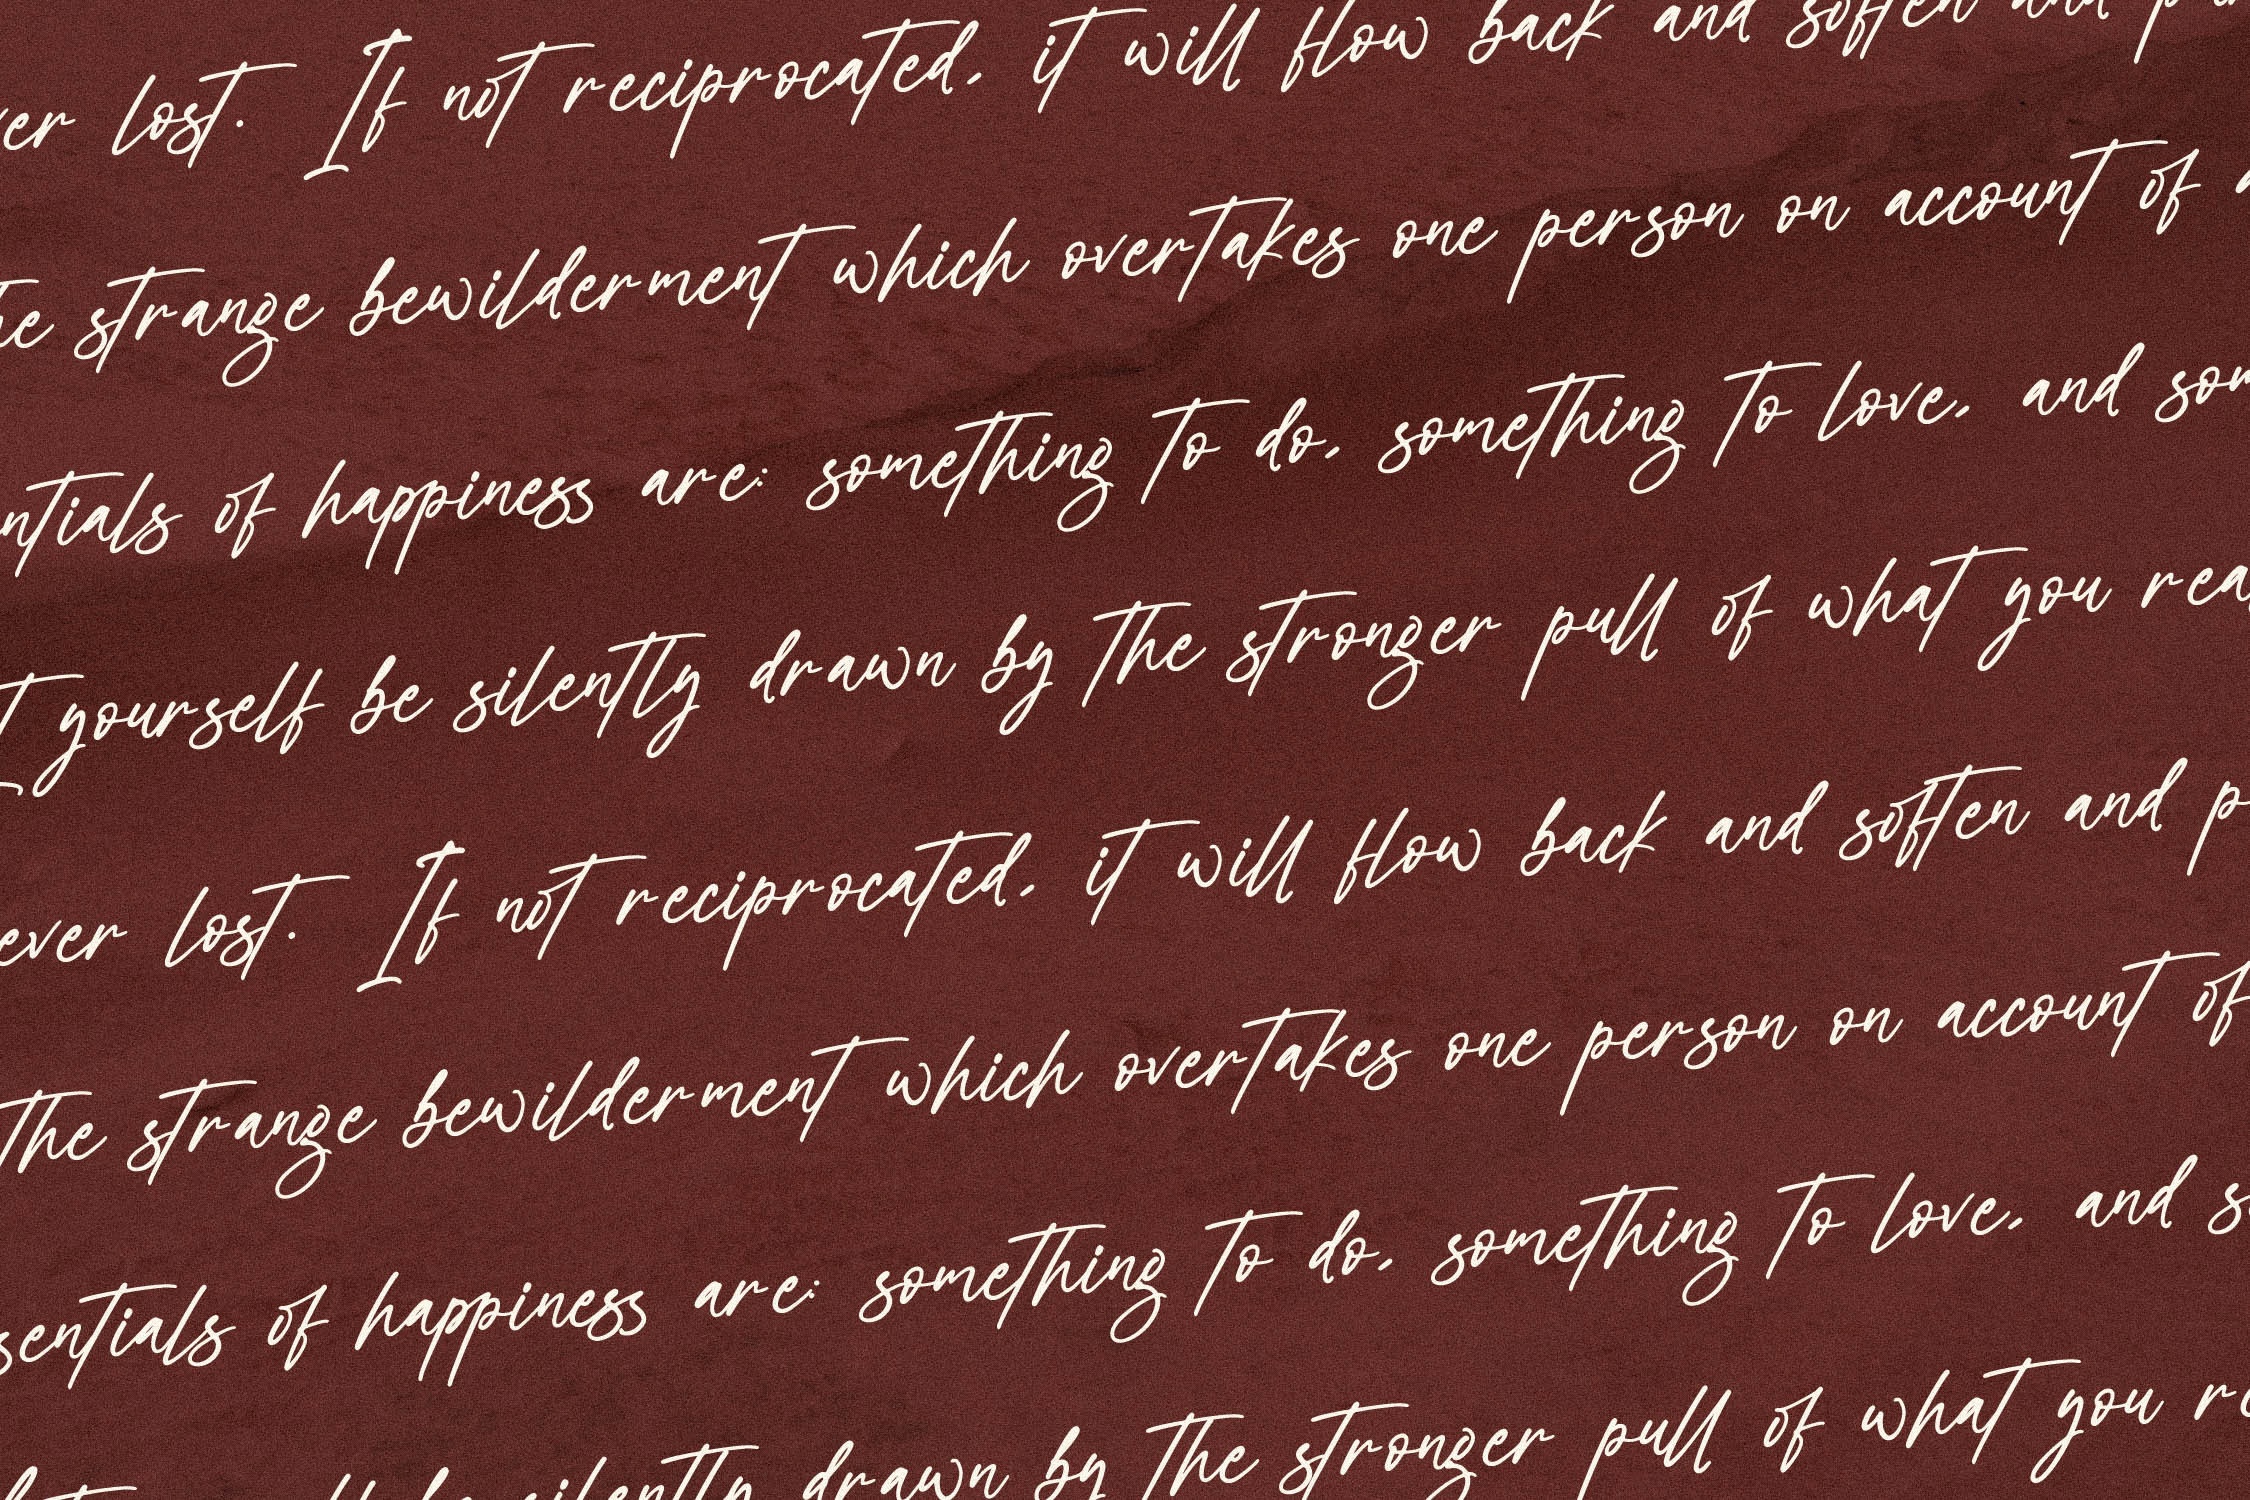 ver lost. If not reciprocated, it will flow back and soften and
the strange bewilderment which overtakes one person on account of
entials of happiness are: something to do, something to love, and som
yourself be silently drawn by the stronger pull of what you rea
ever lost. If not reciprocated, it will flow back and soften and p
the strange bewilderment which overtakes one person on account of
sentials of happiness are: something to do, something to love, and s
silently drawn by the stronger pull of what you re